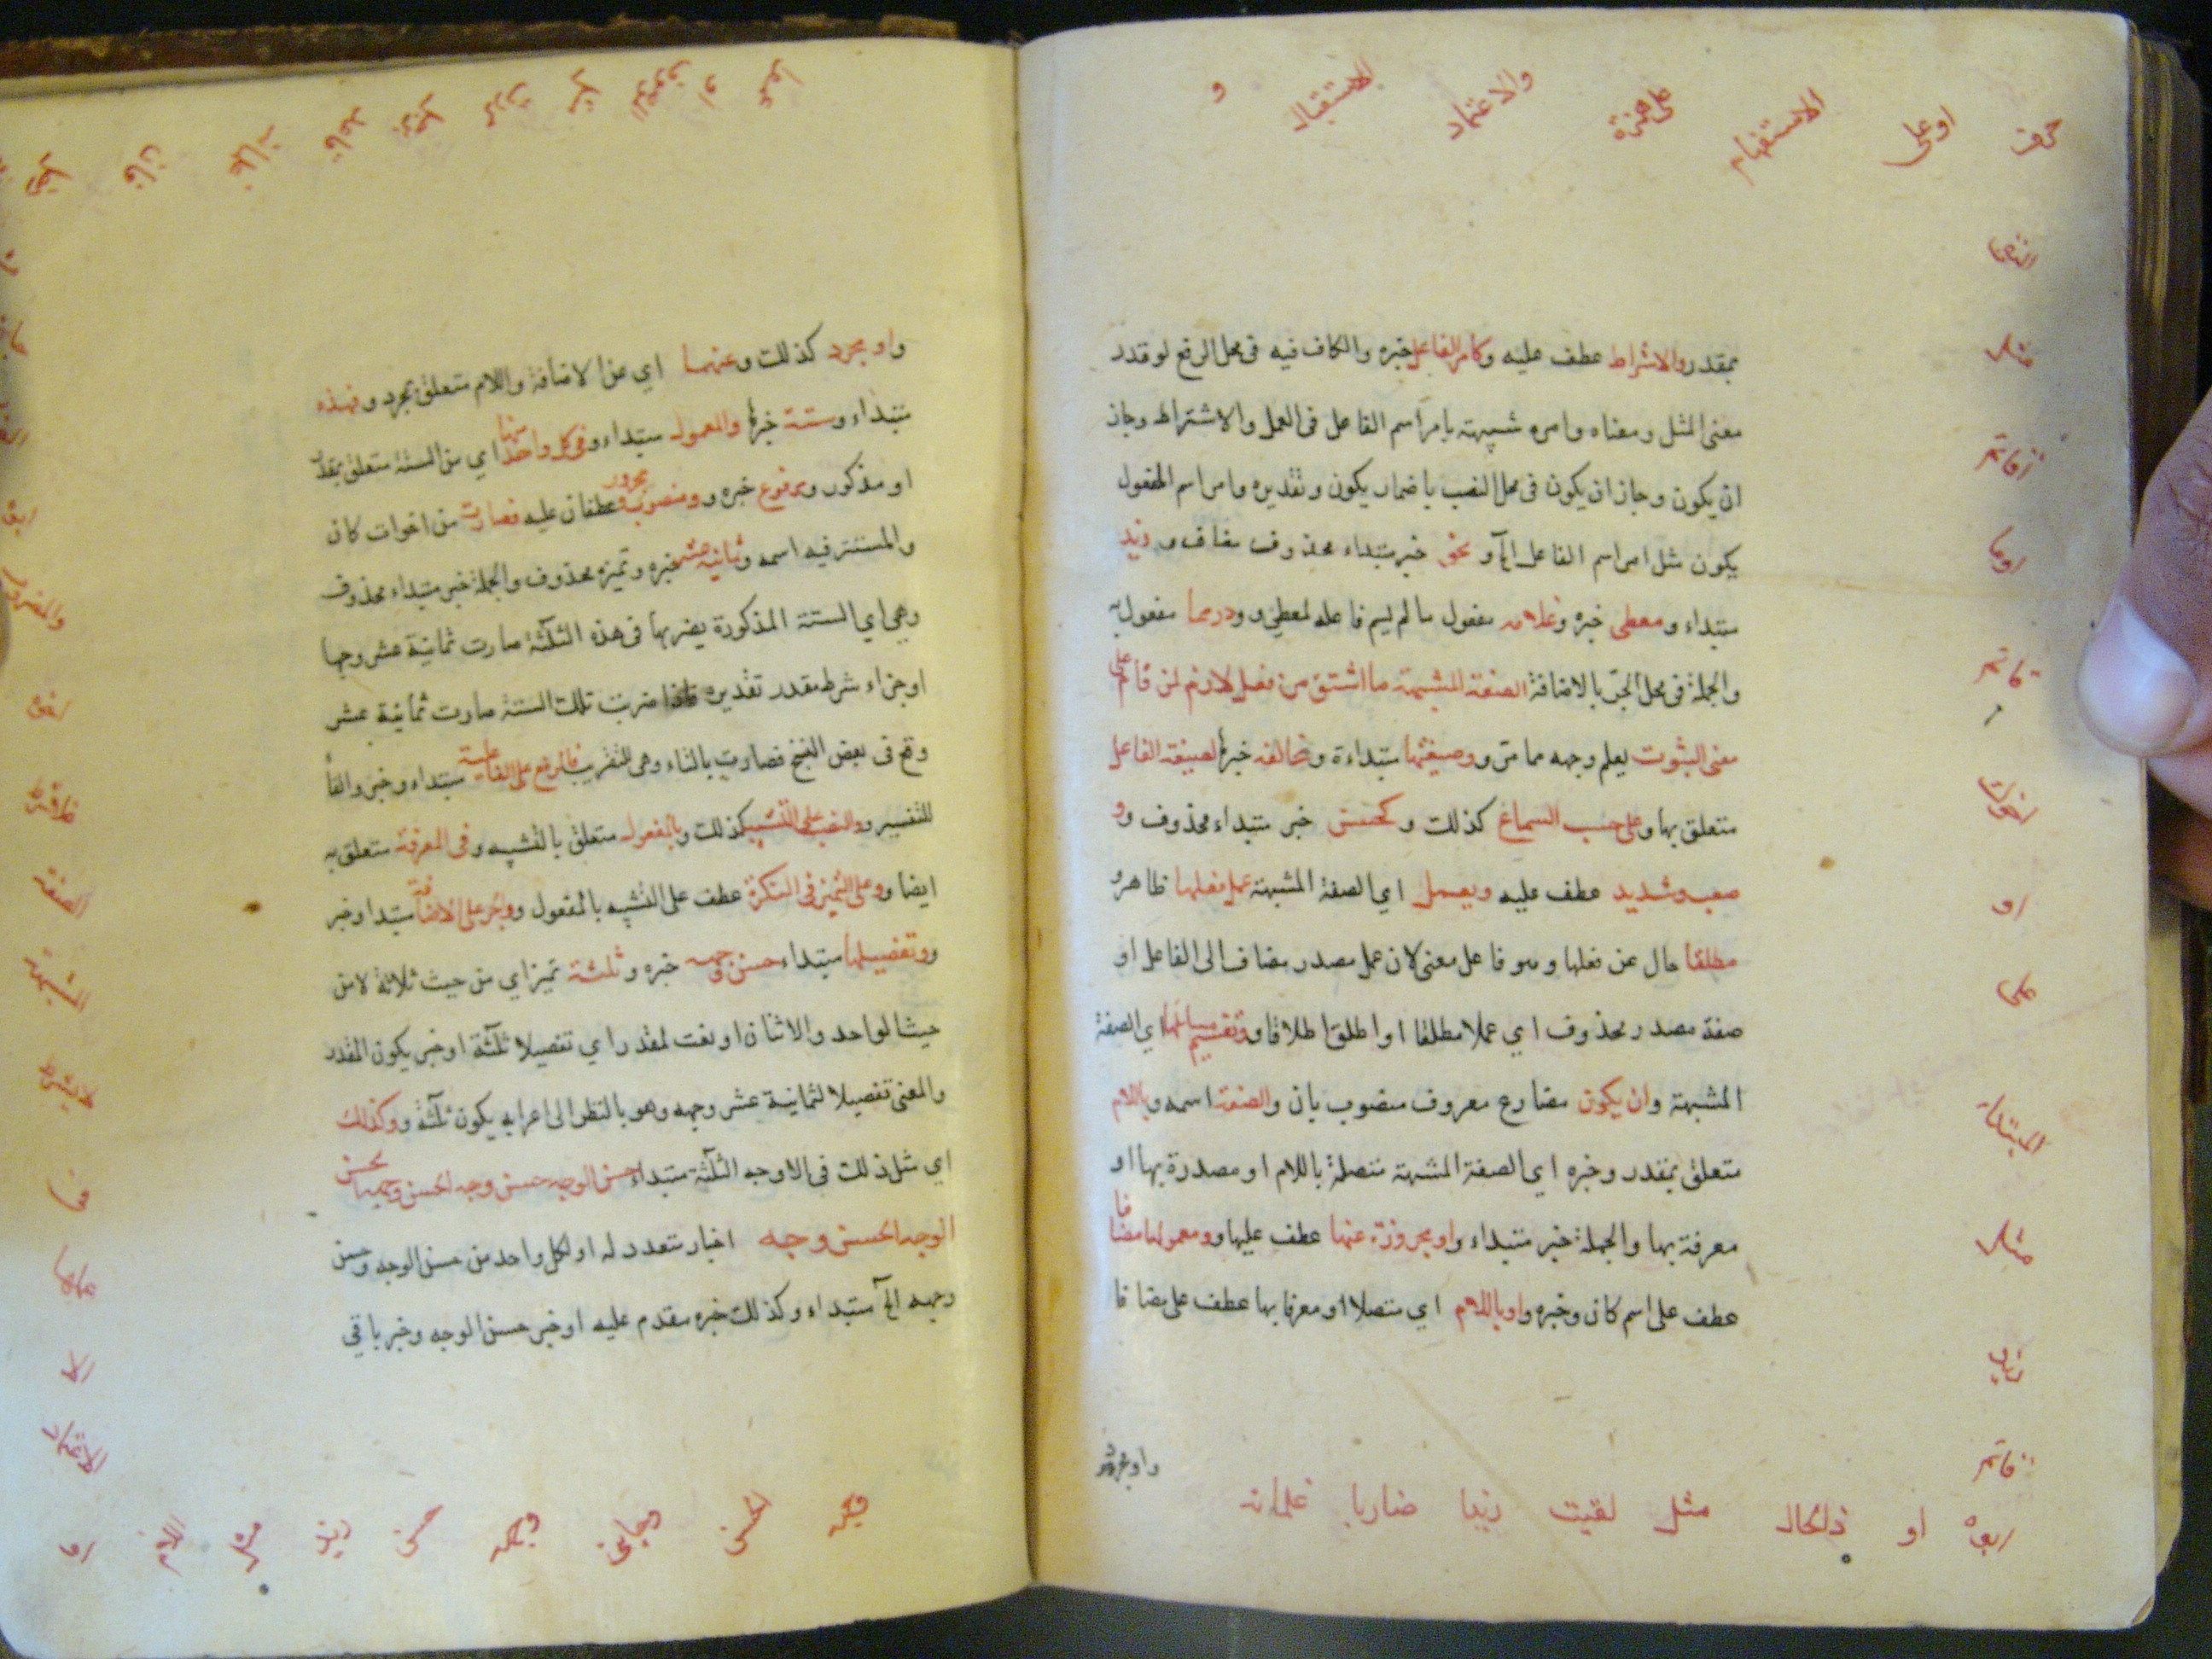 بمقدر والاشراط عطف عليه وكامر الفاعل خبره والكاف فيه فى محل الرفع لو قدر
معنى المثل ومعناه وامره شبيهته بامر اسم الفاعل فى العمل والاشتراط وجاز
ان يكون وجاز ان يكون فى محل النصب باضمار يكون وتقديره وامر اسم المفعول
يكون مثل امر اسم الفاعل الخ و نحو خبر مبتداء محذوف مضاف و زيد
مبتداء و معطى خبره و غلامه مفعول ما لم يسم فاعله لمعطى و ودرهما مفعول به
والجملة فى محل الجر بالاضافة الصفة المشبهة ما اشتق من فعل لازم لمن قام على
معنى الثبوت يعلم وجهه مما مر و وصيغتها مبتداءة و مخالفه خبرها لصيغة الفاعل
متعلق بها و على حسب السماع كذلك و كحسن خبر مبتداء محذوف وو
صعب وشديد عطف عليه و يعمل اي الصفة المشبهة عمل فعلها ظاهر و
مطلقا حال عن فعلها وهو فاعل معنى لان عمل مصدر مضاف الى الفاعل او
صفة مصدر محذوف اي عملا مطلقا او اطلق اطلاقا و وتقسيم مسائلها اي الصفة
المشبهة وان يكون مضارع معروف منصوب بان والصفة اسمه و باللام
متعلق بمقدر وخبره اي الصفة المشبهة متصلة باللام او مصدرة بها او
معرفة بها والجملة خبر مبتداء و او مجرورة عنها عطف عليها و ومعمولها مضافا
عطف على اسم كان وخبره و او باللام اي متصلا او معرفا بها عطف على مضافا
واو مجرد
حرف
او على
الاستفهام
على همزة
والاعتماد
الاستقبال
و
مثل
قائم
او
مثل
زيد
قائم
او ذى الحال مثل لقيت زيدا ضاربا غلمانه
واو مجرد كذلك و عنهما اي عن الاضافة واللام متعلق بمجرد و فهذه
مبتداء و ستة خبرها والمعمول مبتداء و فى كل واحد منها اي من الستة متعلق بمقدر
او مذكور و مرفوع خبره و ومنصوب ومجرور عطفان عليه فصارت من اخوات كان
والمستتر فيه اسمه و ثمانية عشر خبره وتميزه محذوف والجملة خبر مبتداء محذوف
وهي اي الستة المذكورة يضربها فى هذه الثلثة صارت ثمانية عشر وجها
او جزاء شرط مقدر تقديره فاذا ضربت تلك الستة صارت ثمانية عشر
وقع فى بعض النسخ فصارت بالتاء وهى للتقريب فالرفع على الفاعلية مبتداء وخبر والفاء
للتفسير و والنصب على التشبيه كذلك و بالمفعول متعلق بالتشبيه و فى المعرفة متعلق به
ايضا و وعلى التميز فى النكرة عطف على التشبيه بالمفعول و والجر على الاضافة مبتدا وخبر
و وتفصيلها مبتداء حسن وجهه خبره و ثلثة تميز اي من حيث ثلاثة لا من
حيث الواحد والاثنان او نعت لمقدر اي تفصيلا ثلثة او خبر يكون المقدر
والمعنى تفصيلا لثمانية عشر وجهه وهو بالنظر الى اعرابه يكون ثلثة و وكذلك
اي مثل ذلك فى الاوجه الثلثة مبتداء حسن الوجه حسن وجه الحسن وجهه الحسن
الوجه الحسن وجه اخبار متعدد له او لكل واحد من حسن الوجه وحسن
وجهه الخ مبتداء وكذلك خبره مقدم عليه او خبر حسن الوجه وخبر باقى
الصفة
المشبهة
فى
الا
الاعتماد
او اللام مثل زيد حسن وجهه وجائنى الحسن وجهه